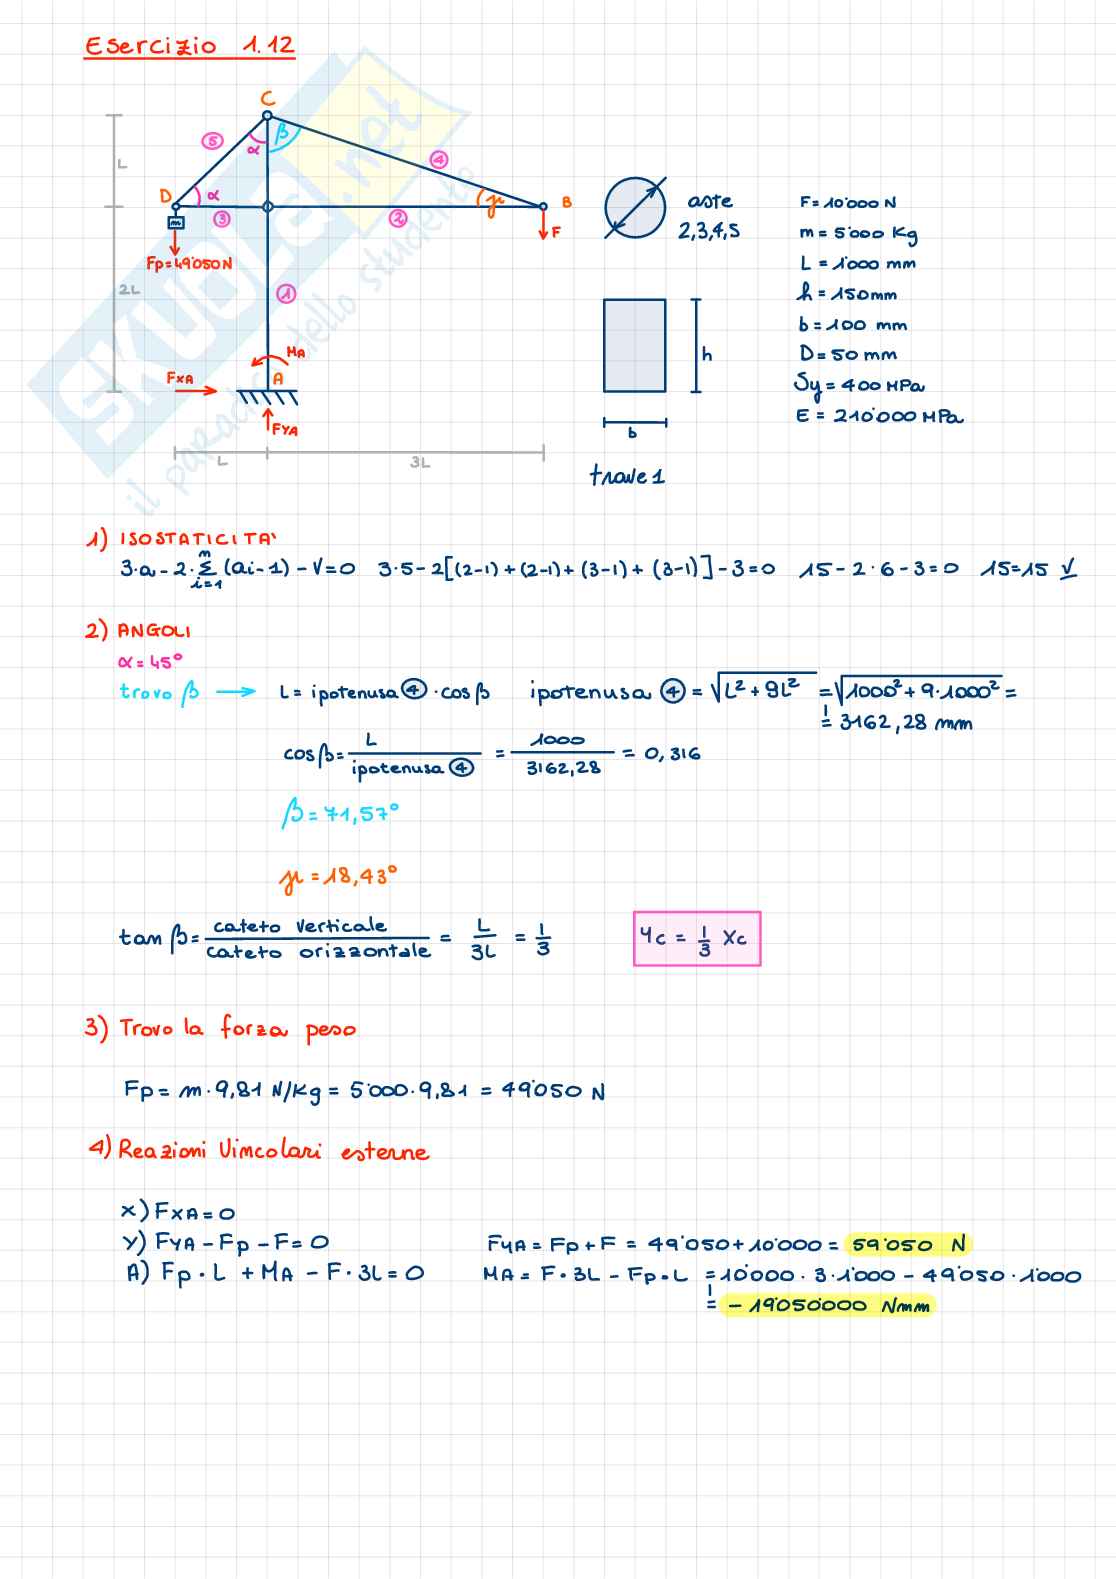 Esercizio 1.12
C
β
5
α
4
L
D
α
γ
B
3
2
m
F
Fp=49'050N
2L
1
MA
FXA
A
FYA
L
3L
aste
2,3,4,5
h
b
trave 1
F=10'000 N
m=5'000 Kg
L=1'000 mm
h=150mm
b=100 mm
D=50 mm
Sy=400 MPa
E=210'000 MPa
SKUOLA.net
il paradiso dello studente
1) ISOSTATICITA'
3·a-2·Σ(ai-1)-V=0 3·5-2[(2-1)+(2-1)+(3-1)+(3-1)]-3=0 15-2·6-3=0 15=15 V
m
i=1
2) ANGOLI
α=45°
trovo β → L=ipotenusa 4 ·cosβ ipotenusa 4 = √L²+9L² = √1000²+9·1000² =
= 3162,28 mm
cosβ = L / ipotenusa 4 = 1000 / 3162,28 = 0,316
β=71,57°
γ=18,43°
tan β = cateto verticale / cateto orizzontale = L / 3L = 1/3 Yc = 1/3 Xc
3) Trovo la forza peso
Fp = m·9,81 N/Kg = 5'000·9,81 = 49'050 N
4) Reazioni Vincolari esterne
x) FXA=0
y) FYA-Fp-F=0 FYA=Fp+F=49'050+10'000= 59'050 N
A) Fp·L+MA-F·3L=0 MA=F·3L-Fp·L =10'000·3·1'000-49'050·1'000
= -19'050'000 Nmm